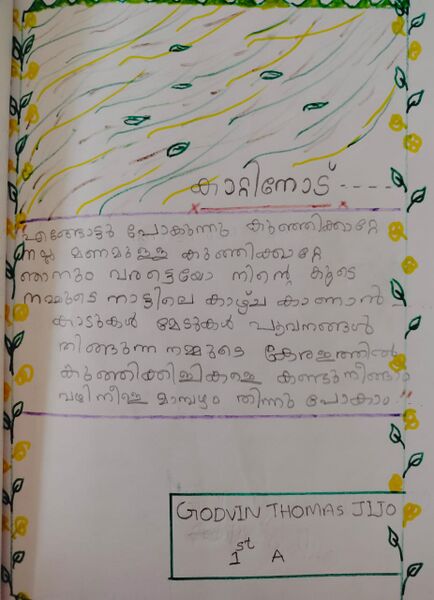 കാറ്റിനോട് -----
എങ്ങോട്ടു പോകുന്നു കുഞ്ഞിക്കാറ്റേ
നല്ല മണമുള്ള കുഞ്ഞിക്കാറ്റേ
ഞാനും വരട്ടെയോ നിന്റെ കൂടെ
നമ്മുടെ നാട്ടിലെ കാഴ്ച കാണാൻ
കാടുകൾ മേടുകൾ പൂവനങ്ങൾ
തിങ്ങുന്ന നമ്മുടെ കേരളത്തിൽ
കുഞ്ഞിക്കിളികളെ കണ്ടുനീങ്ങാം
വഴി നീളെ മാമ്പഴം തിന്നു പോകാം !!
GODVIN THOMAS JIJO
1st A